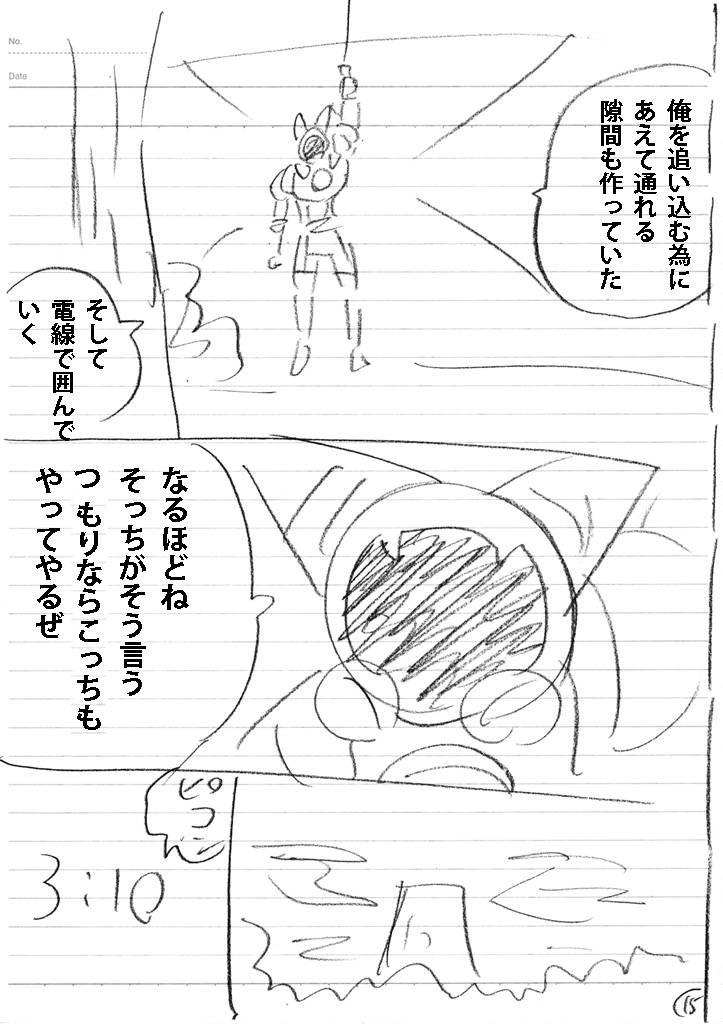 No.
Date
俺を追い込む為に
あえて通れる
隙間も作っていた
そして
電線で囲んで
いく
なるほどね
そっちがそう言う
つもりならこっちも
やってやるぜ
ピコン
3:10
15